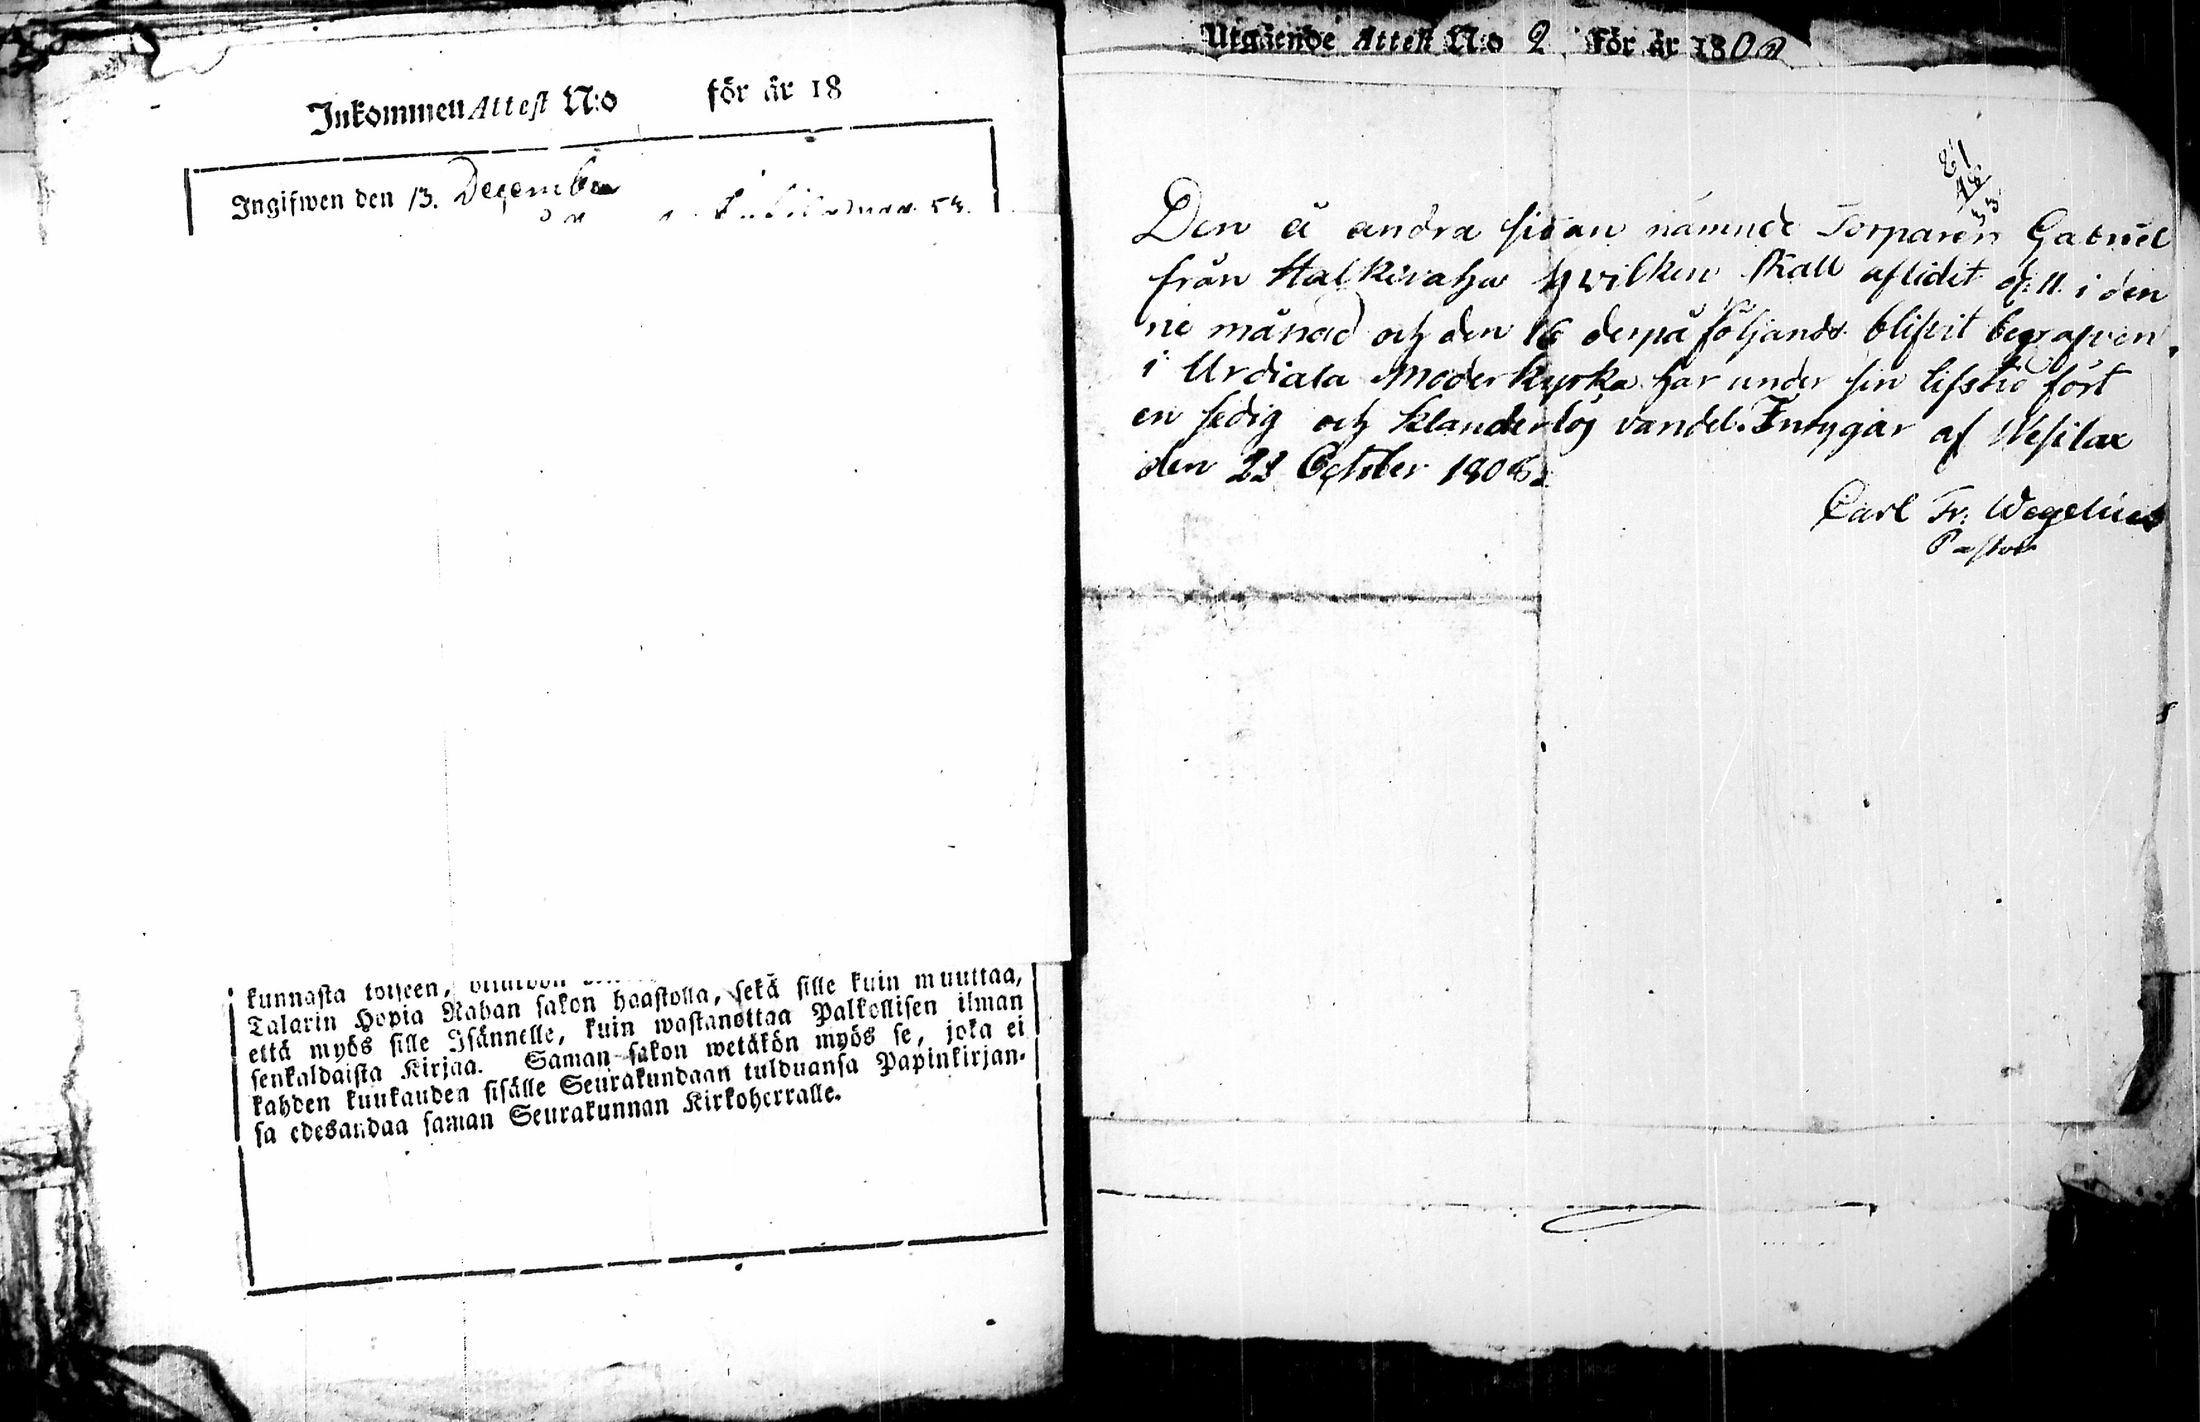 Inkommen Attest N:o för år 18
Ingifwen den 13. December
kunnasta toiseen,
Talarin Hopia Rahan sakon haastolla, sekä sille kuin muuttaa,
että myös sille Isännelle, kuin wastanottaa Palkollisen ilman
senkaldaista Kirjaa. Saman sakon wetäkön myös se, joka ei
kahden kuukauden sisälle Seurakundaan tulduansa Papinkirjan-
sa edesandaa saman Seurakunnan Kirkoherralle.
Utgående Attest N:o 2 För år 180
Den å andra sidan nämnde Torparen Gabriel
från Halkivaha hvilken skall aflidit d. 11 i den
ne månad och den 16 derpå följande blifvit begrafven
i Urdiala Moderkyrka har under sin lifstid fört
en sedig och klanderlös vandel. Intygar af Wesilax
den 22 October 1806.
Carl Fr. Wegelius
Pastor